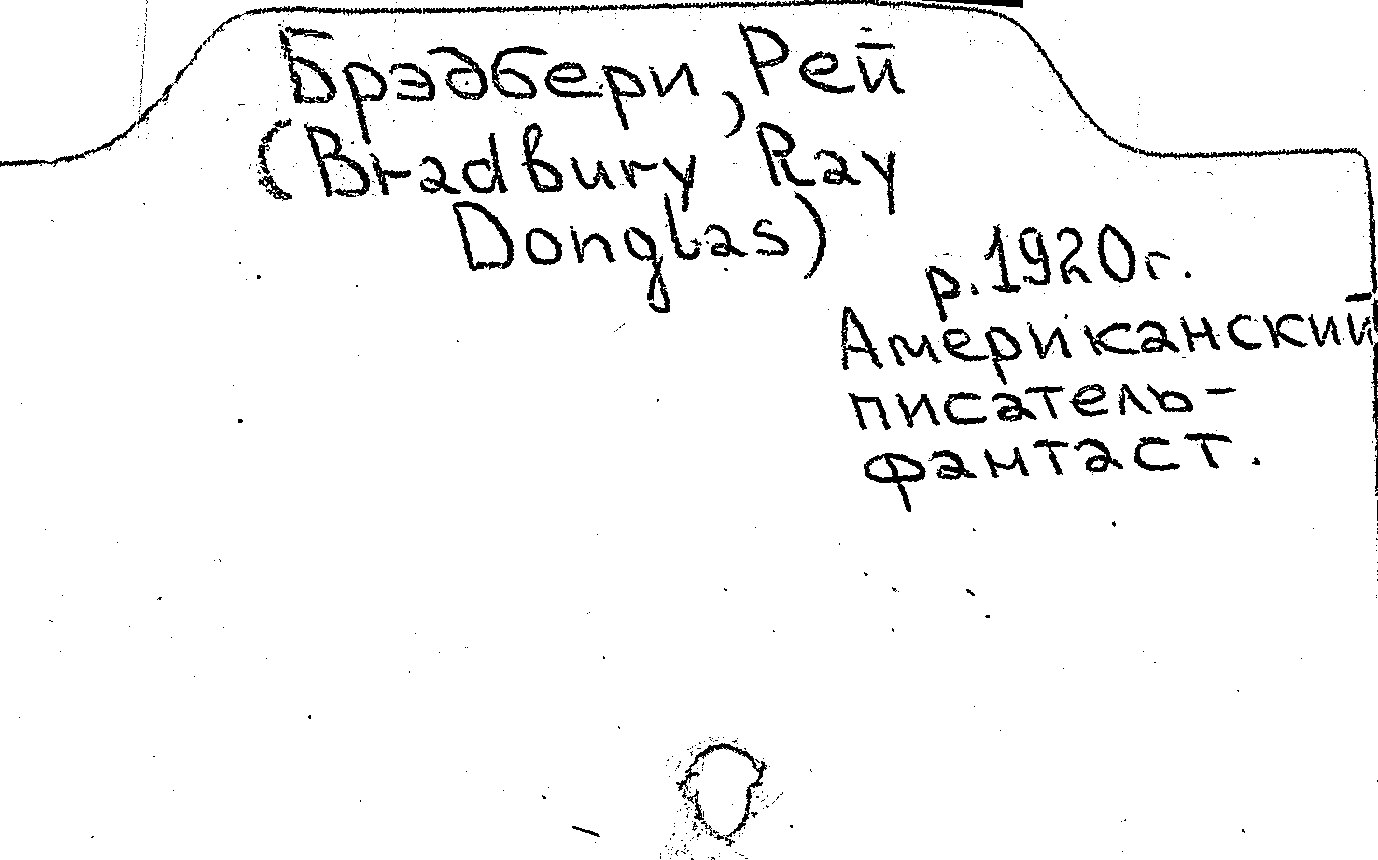 Брэдбери, Рей
(Bradbury Ray
Donglas)
р. 1920г.
Американский
писатель-
фантаст.